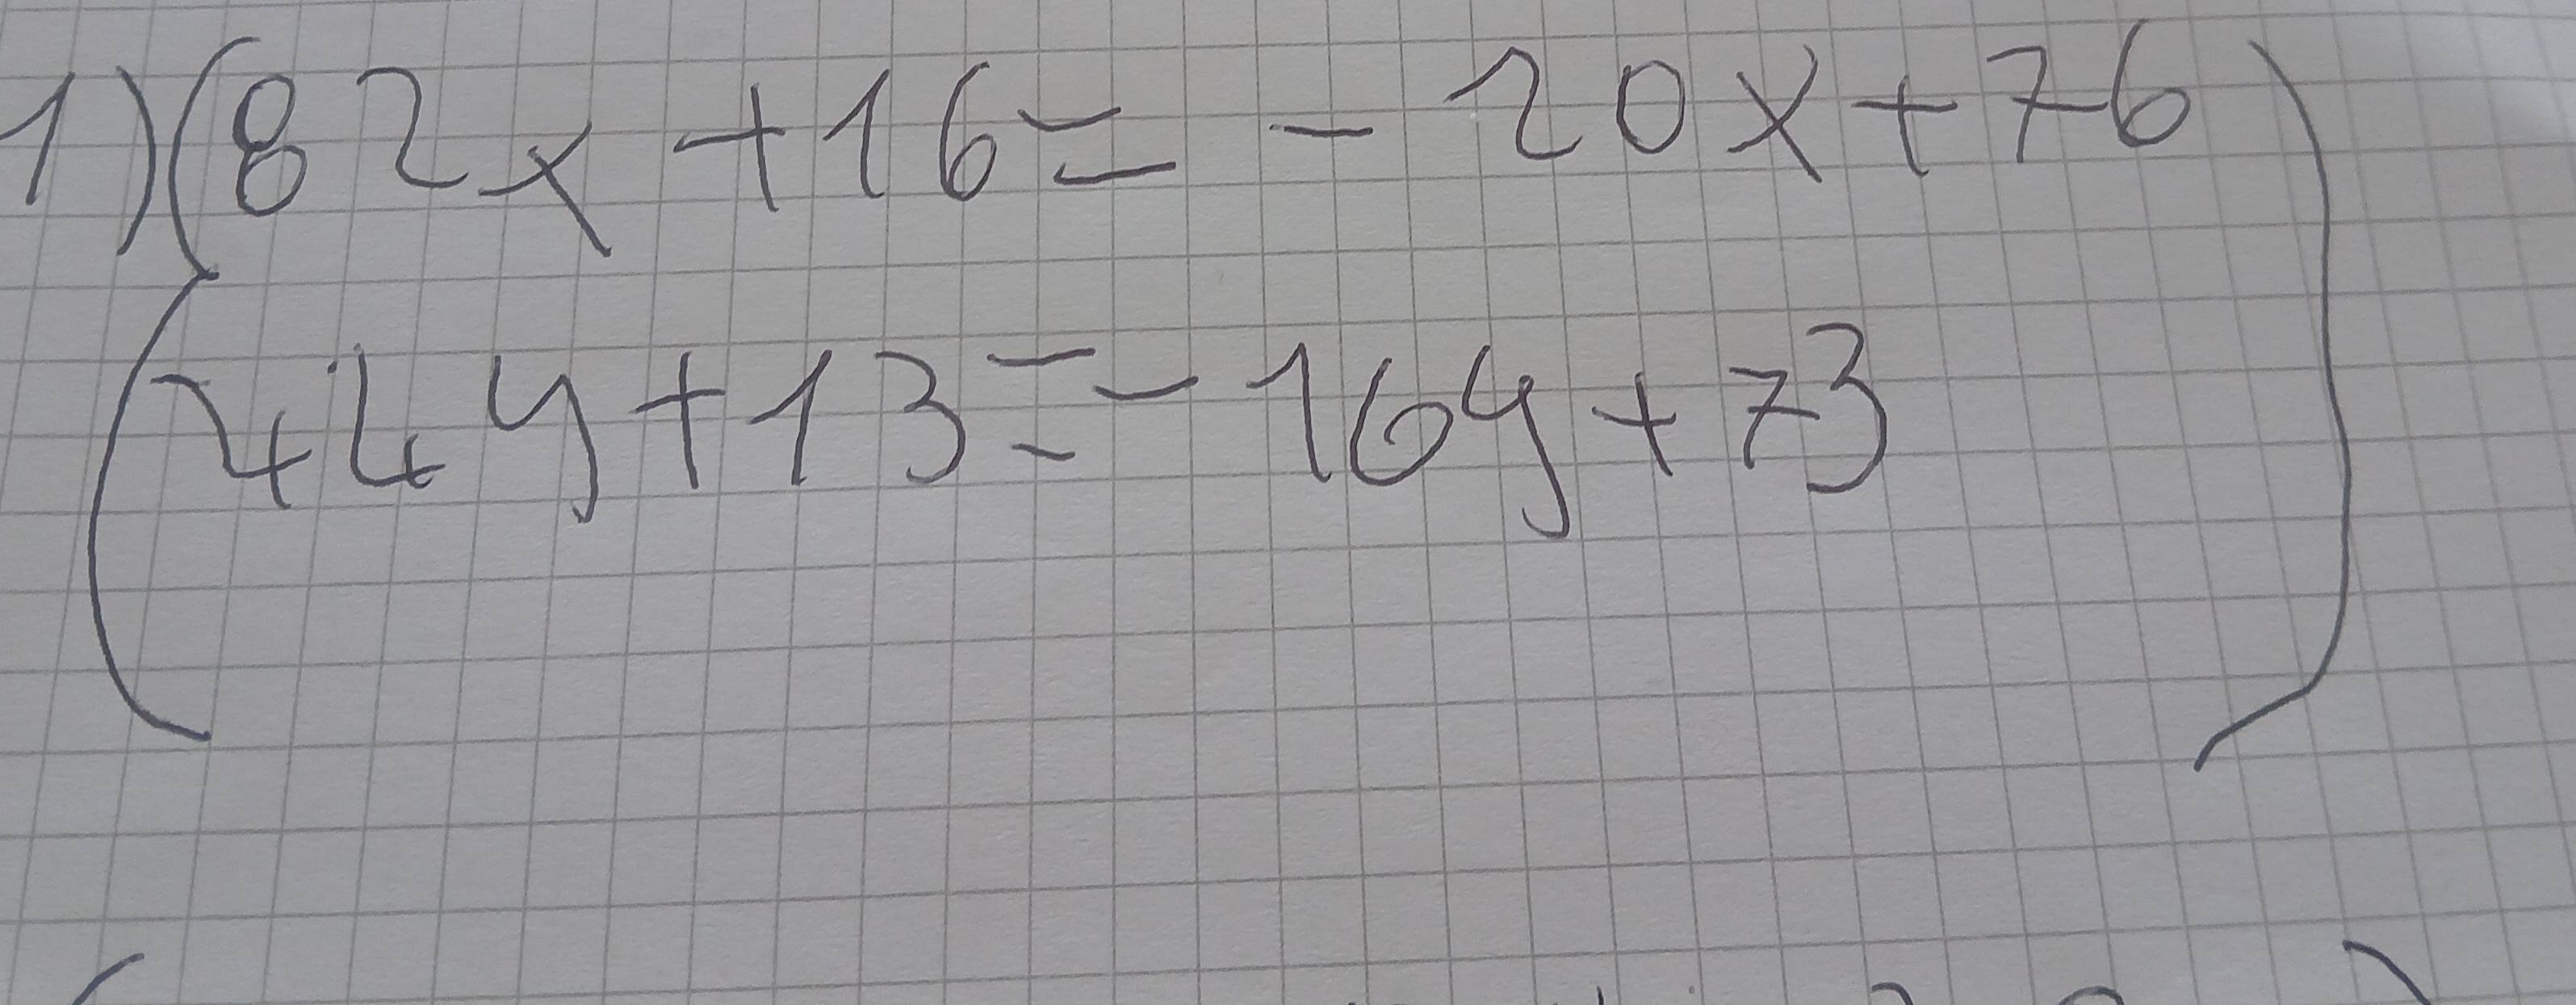 1) (82x + 16 = - 20x + 76)
44y + 13 = - 16y + 73